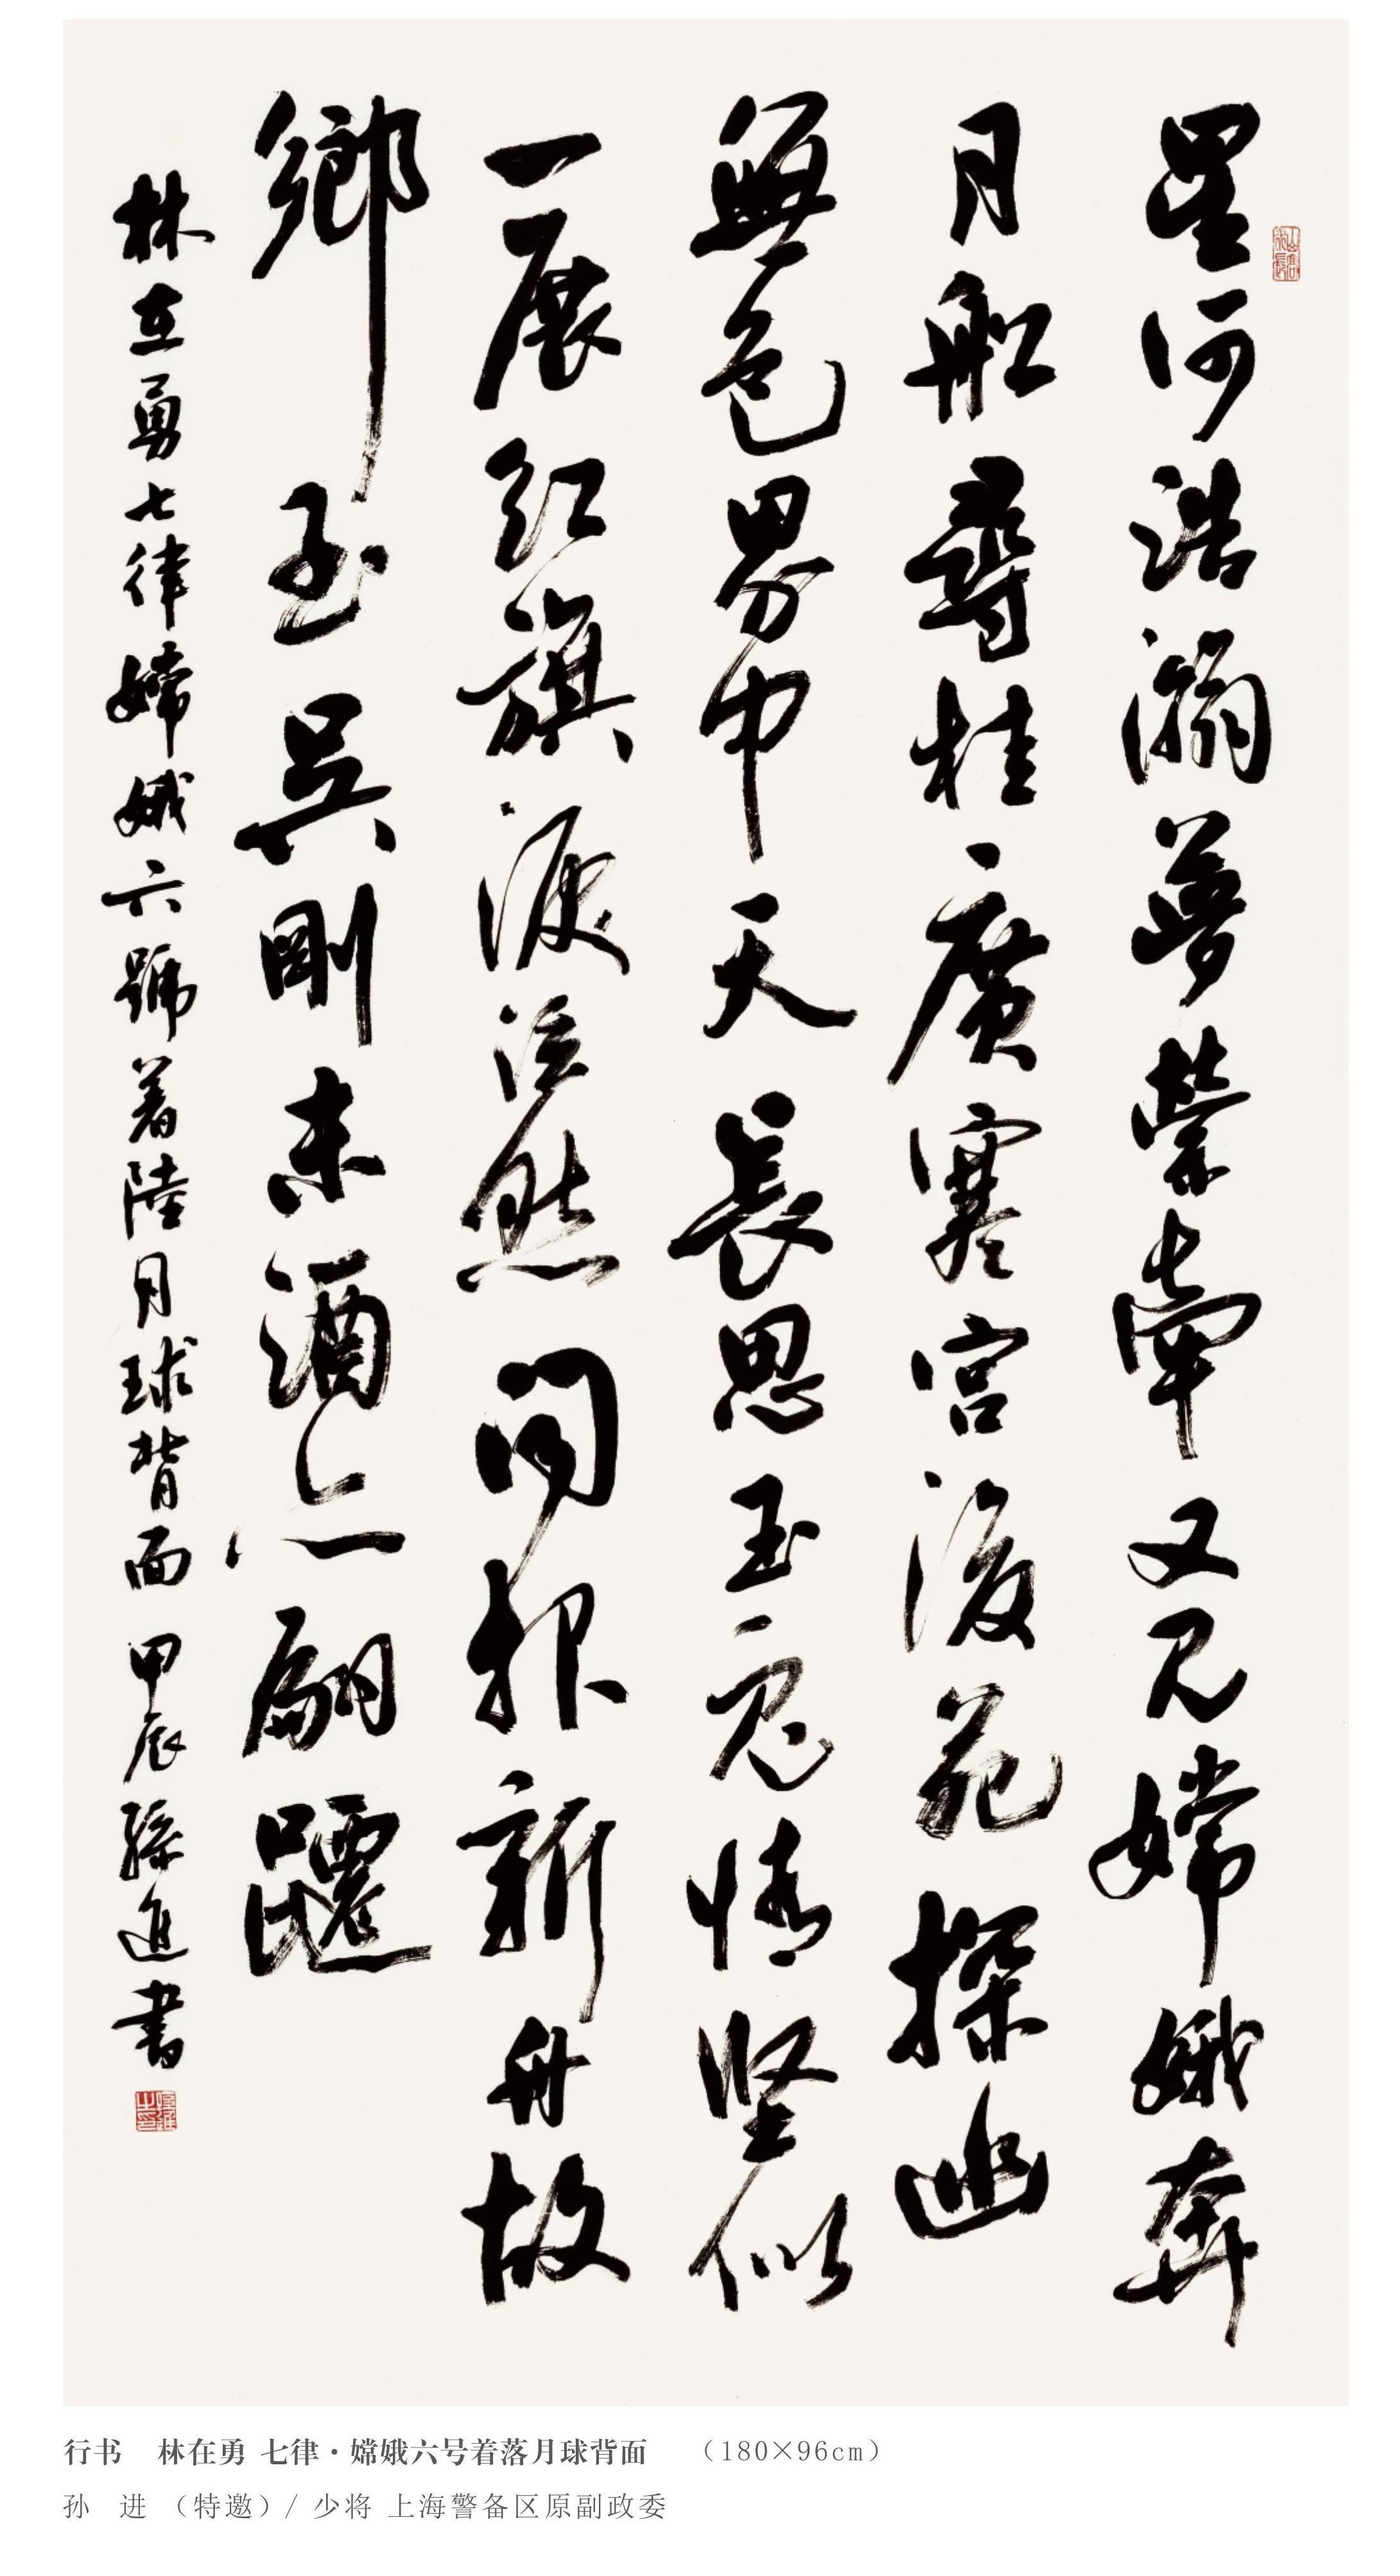 星河浩瀚夢縈牽又见嫦娥奔
月船尋桂廣寒宫後苑探幽
無色界中天長思玉兔情坚似
一展红旗淚泫然同报新舟故
鄉至吴刚未酒亦翩躚
林在勇七律嫦娥六號着陸月球背面 甲辰孫進書
行书 林在勇 七律·嫦娥六号着落月球背面 （180×96cm）
孙 进 （特邀）/ 少将 上海警备区原副政委